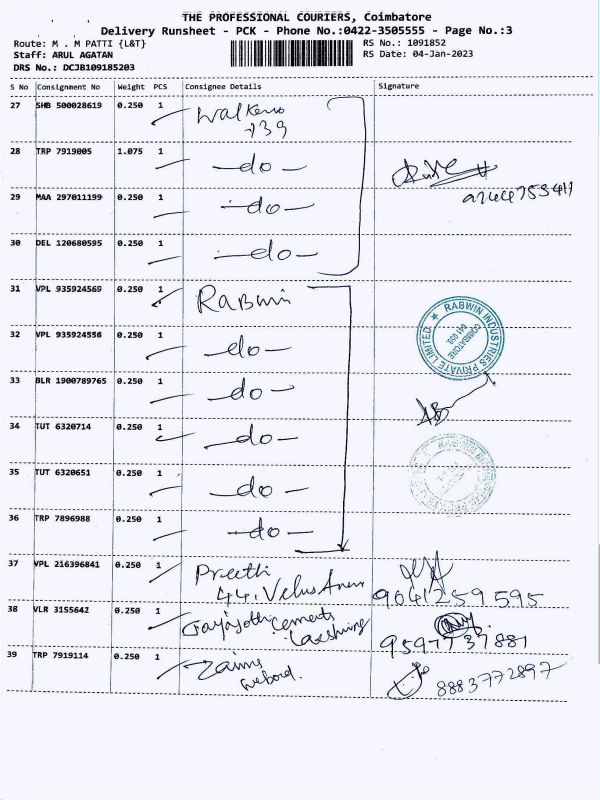 THE PROFESSIONAL COURIERS, Coimbatore
Delivery Runsheet - PCK - Phone No.:0422-3505555 - Page No.:3
Route: M . M PATTI {L&T} RS No.: 1091852
Staff: ARUL AGATAN RS Date: 04-Jan-2023
DRS No.: DCJB109185203
S No Consignment No Weight PCS Consignee Details Signature
27 SHB 500028619 0.250 1
739
28 TRP 7919005 1.075 1 -do-
29 MAA 297011199 0.250 1 -do-
30 DEL 120680595 0.250 1 -do-
31 VPL 935924569 0.250 1 RABWIN
RABWIN INDUSTRIES PRIVATE LIMITED
COIMBATORE
32 VPL 935924556 0.250 1 -do-
33 BLR 1900789765 0.250 1 -do-
34 TUT 6320714 0.250 1 -do-
35 TUT 6320651 0.250 1 -do-
36 TRP 7896988 0.250 1 -do-
37 VPL 216396841 0.250 1 Preethi
44, 9041259595
38 VLR 3155642 0.250 1 cements
9597737881
39 TRP 7919114 0.250 1
8883772897